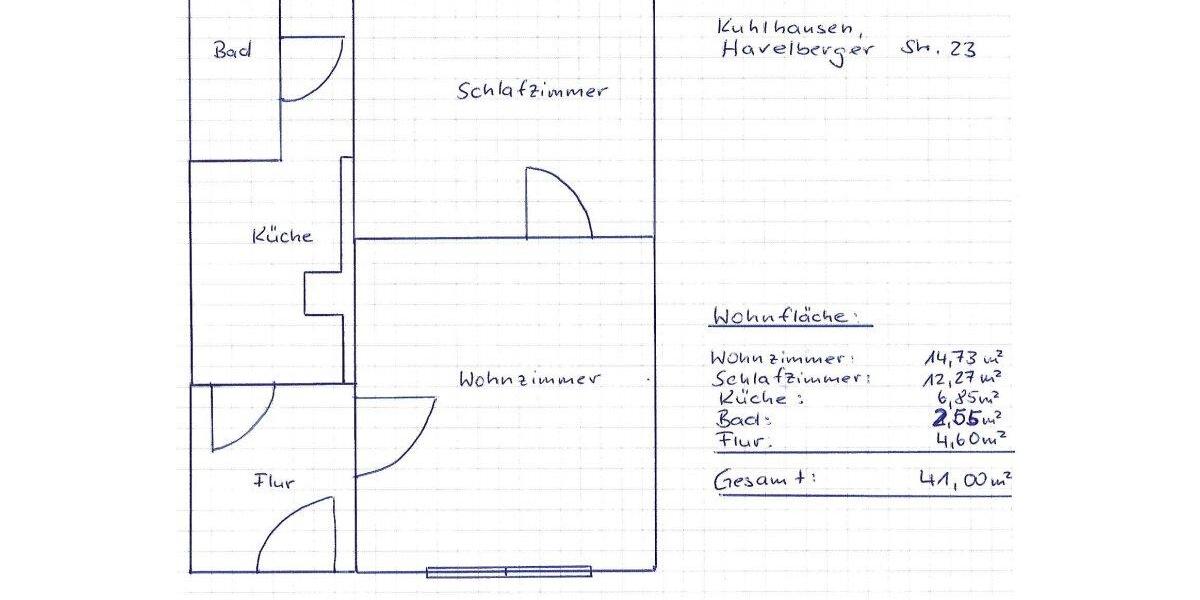 Kuhlhausen,
Havelberger Str. 23
Bad
Schlafzimmer
Küche
Wohnzimmer
Flur
Wohnfläche:
Wohnzimmer: 14,73 m²
Schlafzimmer: 12,27 m²
Küche: 6,85 m²
Bad: 2,55 m²
Flur: 4,60 m²
Gesamt: 41,00 m²